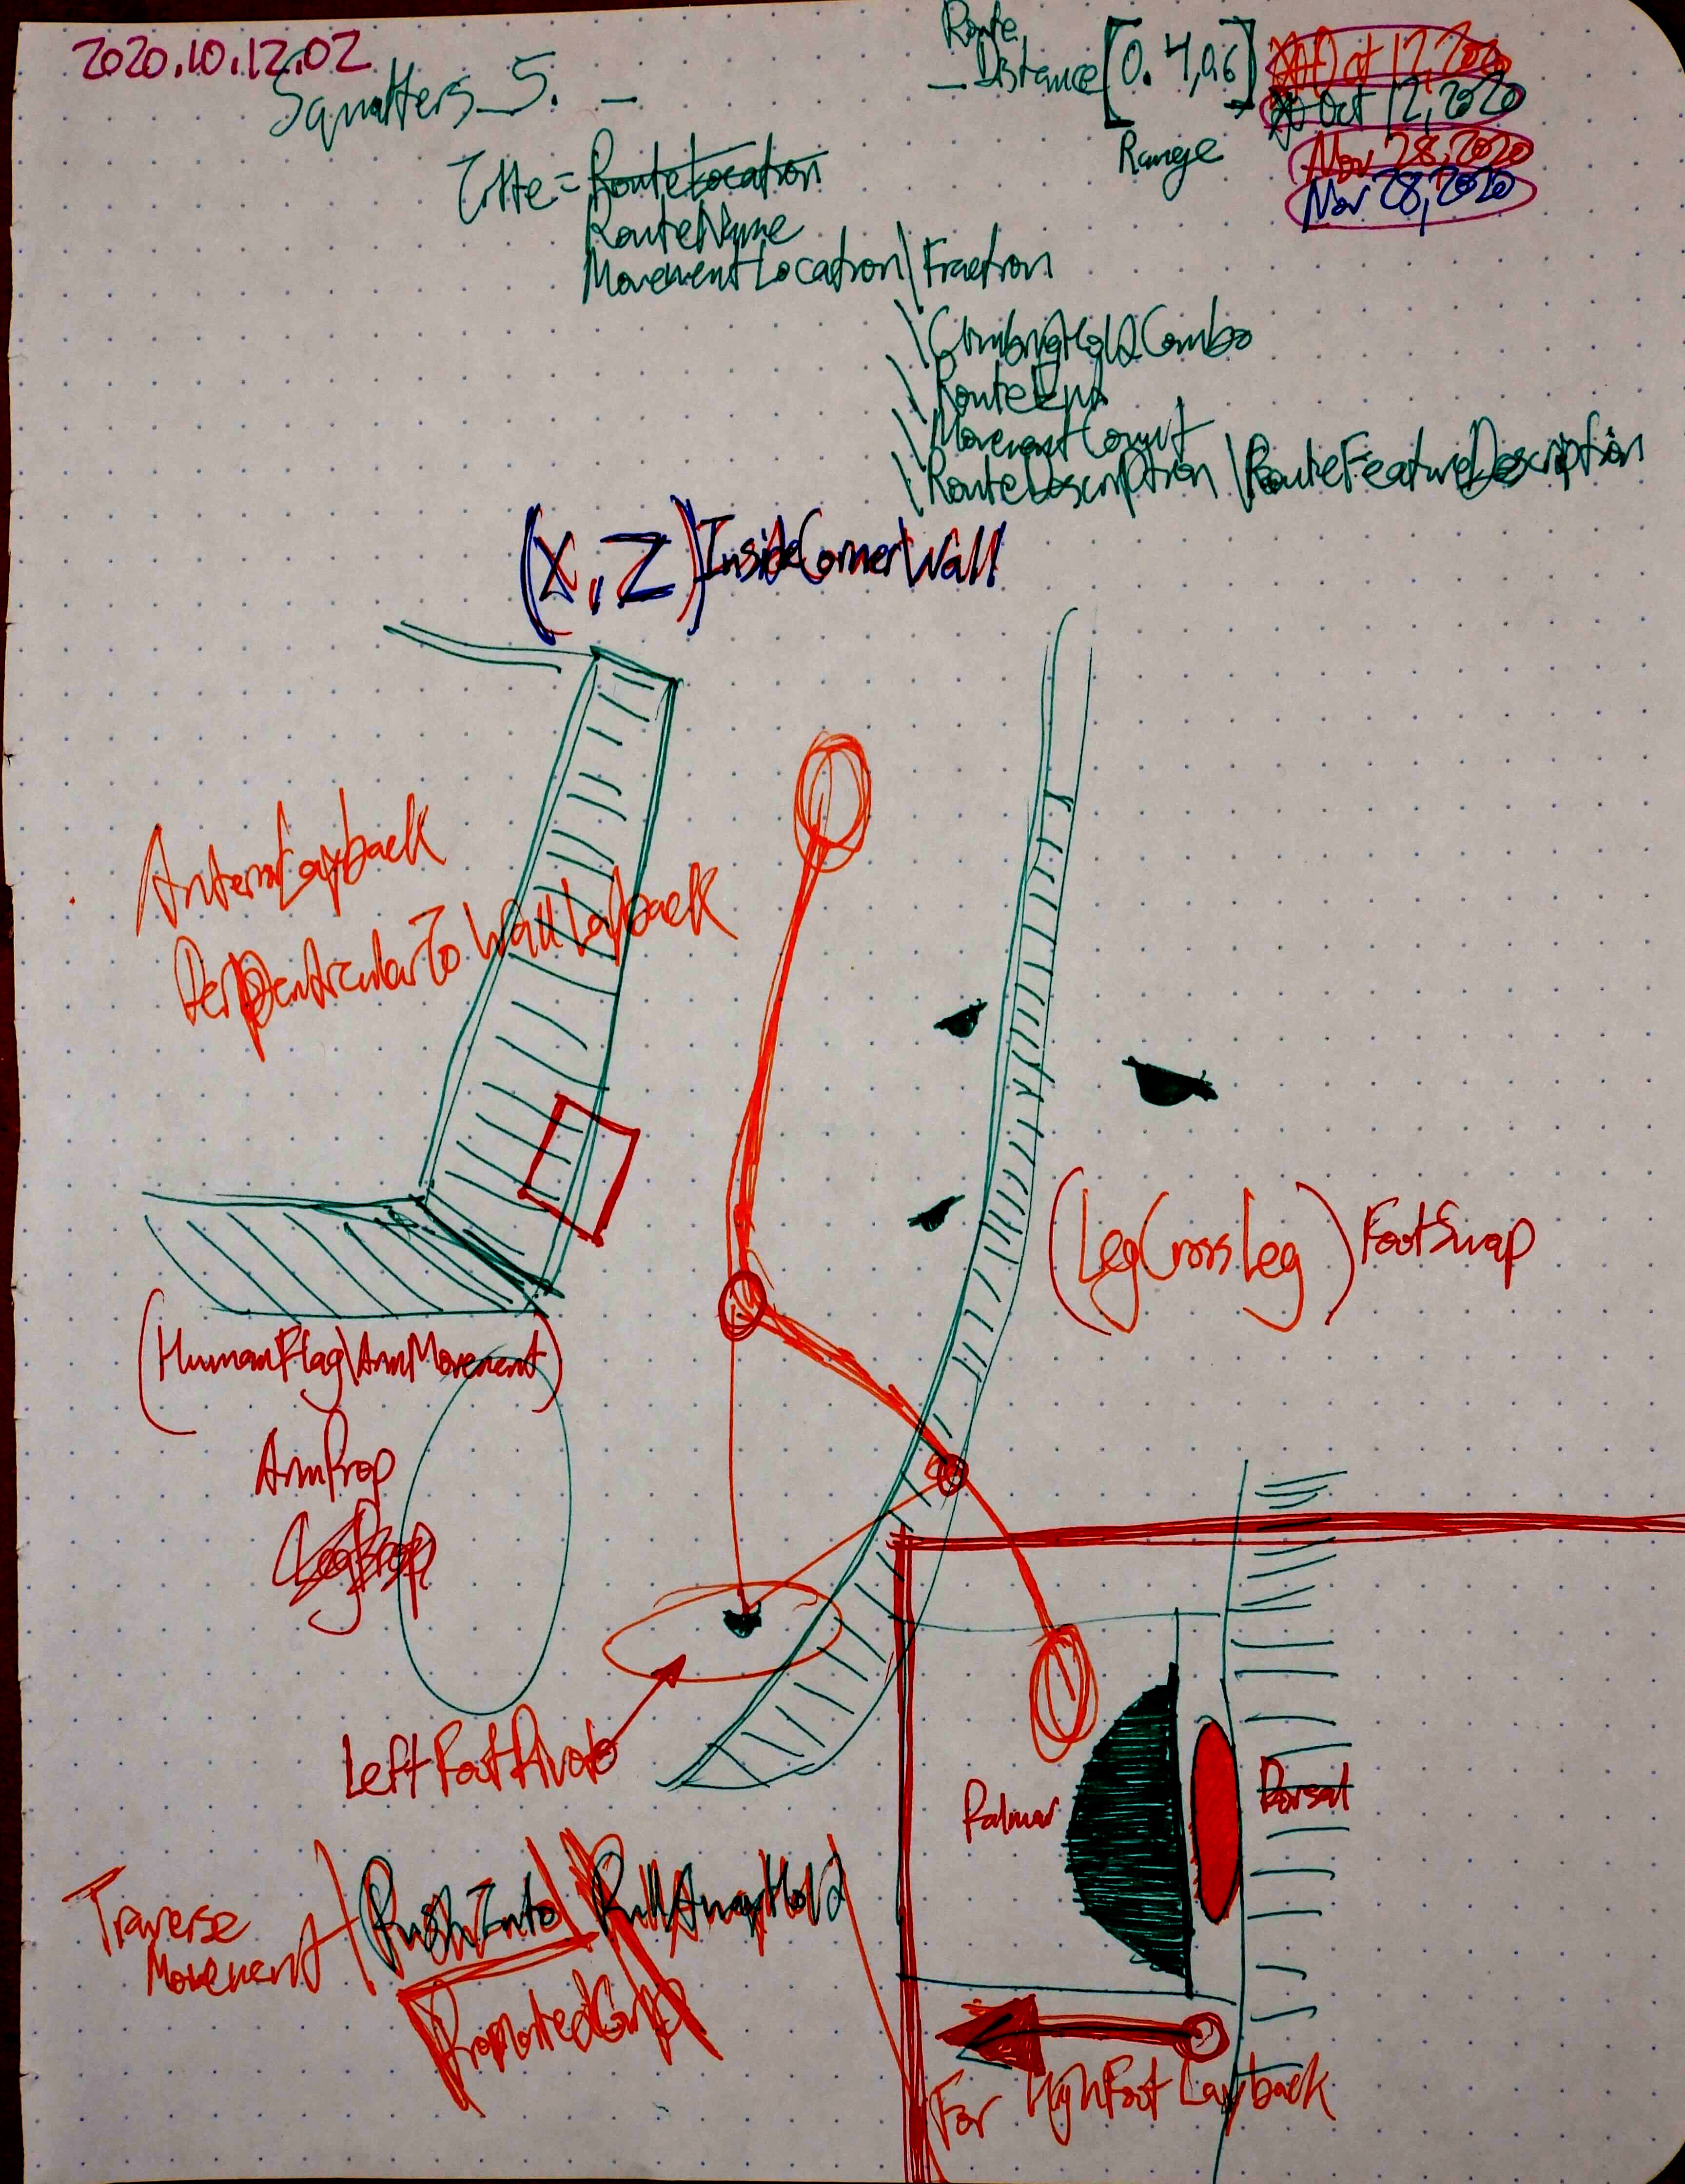 2020.10.12.02
Squatters_5. _
Route
_ Distance [0.4,0.6]
Range
Oct 12, 2020
Oct 12, 2020
Nov 28, 2020
Nov 28, 2020
Title = RouteLocation
RouteName
MovementLocation\Fraction
\ClimbingHoldCombo
\RouteEnd
\MovementCount
\RouteDescription \RouteFeatureDescription
(X, Z) InsideCornerWall
Layback
PerpendicularToWallLayback
(LegCrossLeg) FootSwap
(HumanFlag\ArmMovement)
ArmProp
LegProp
LeftFootPivot
Palmar
Dorsal
Traverse
Movement
PushInto\PullAwayHold
PronatedGrip
For HighFoot Layback